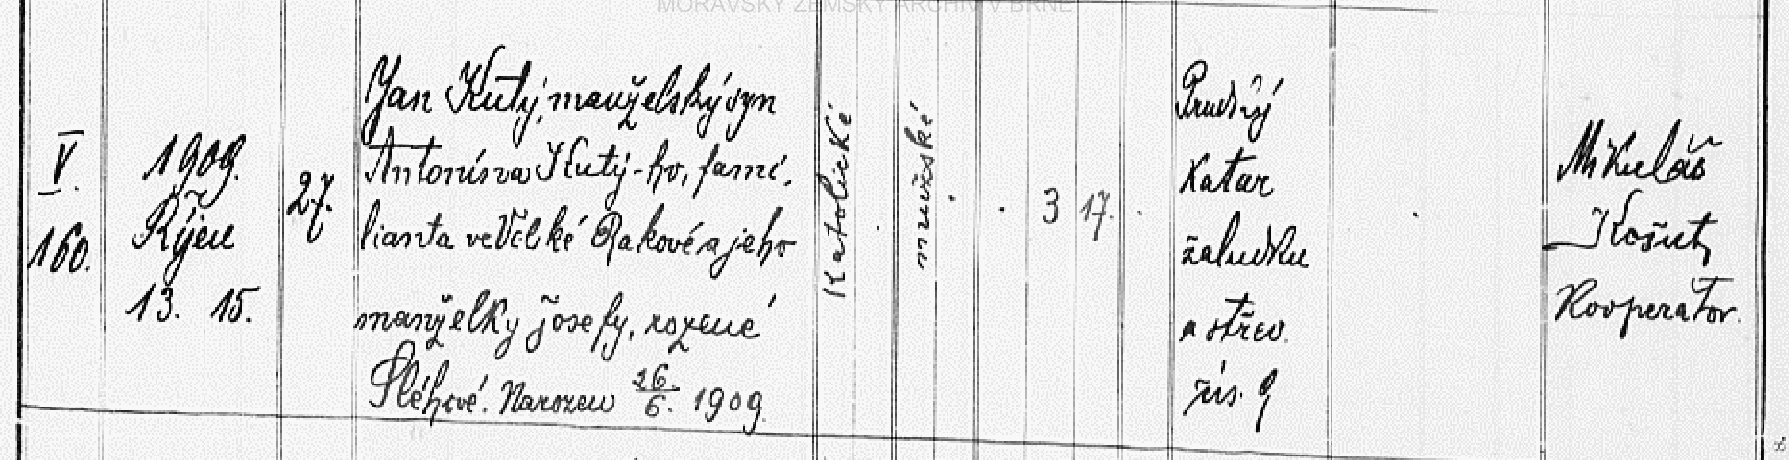 MORAVSKÝ ZEMSKÝ ARCHIV V BRNĚ
V.
160.
1909.
Říjen
13. 15.
27.
Jan Kutý, manželský syn
Antonína Kutý-ho, fami-
lianta ve Velké Rakové a jeho
manželky Josefy, rozené
Šléhové. Narozen 26./6. 1909.
Katolické
mužské
3 17.
Prudký
Katar
žaludku
a střev.
čís. 9
Mikuláš
Košut
Kooperator.